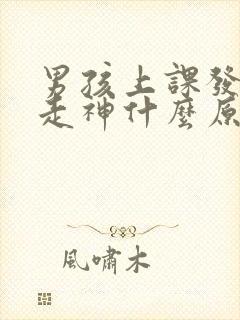 男孩上課發
走神什麼原
風嘯木